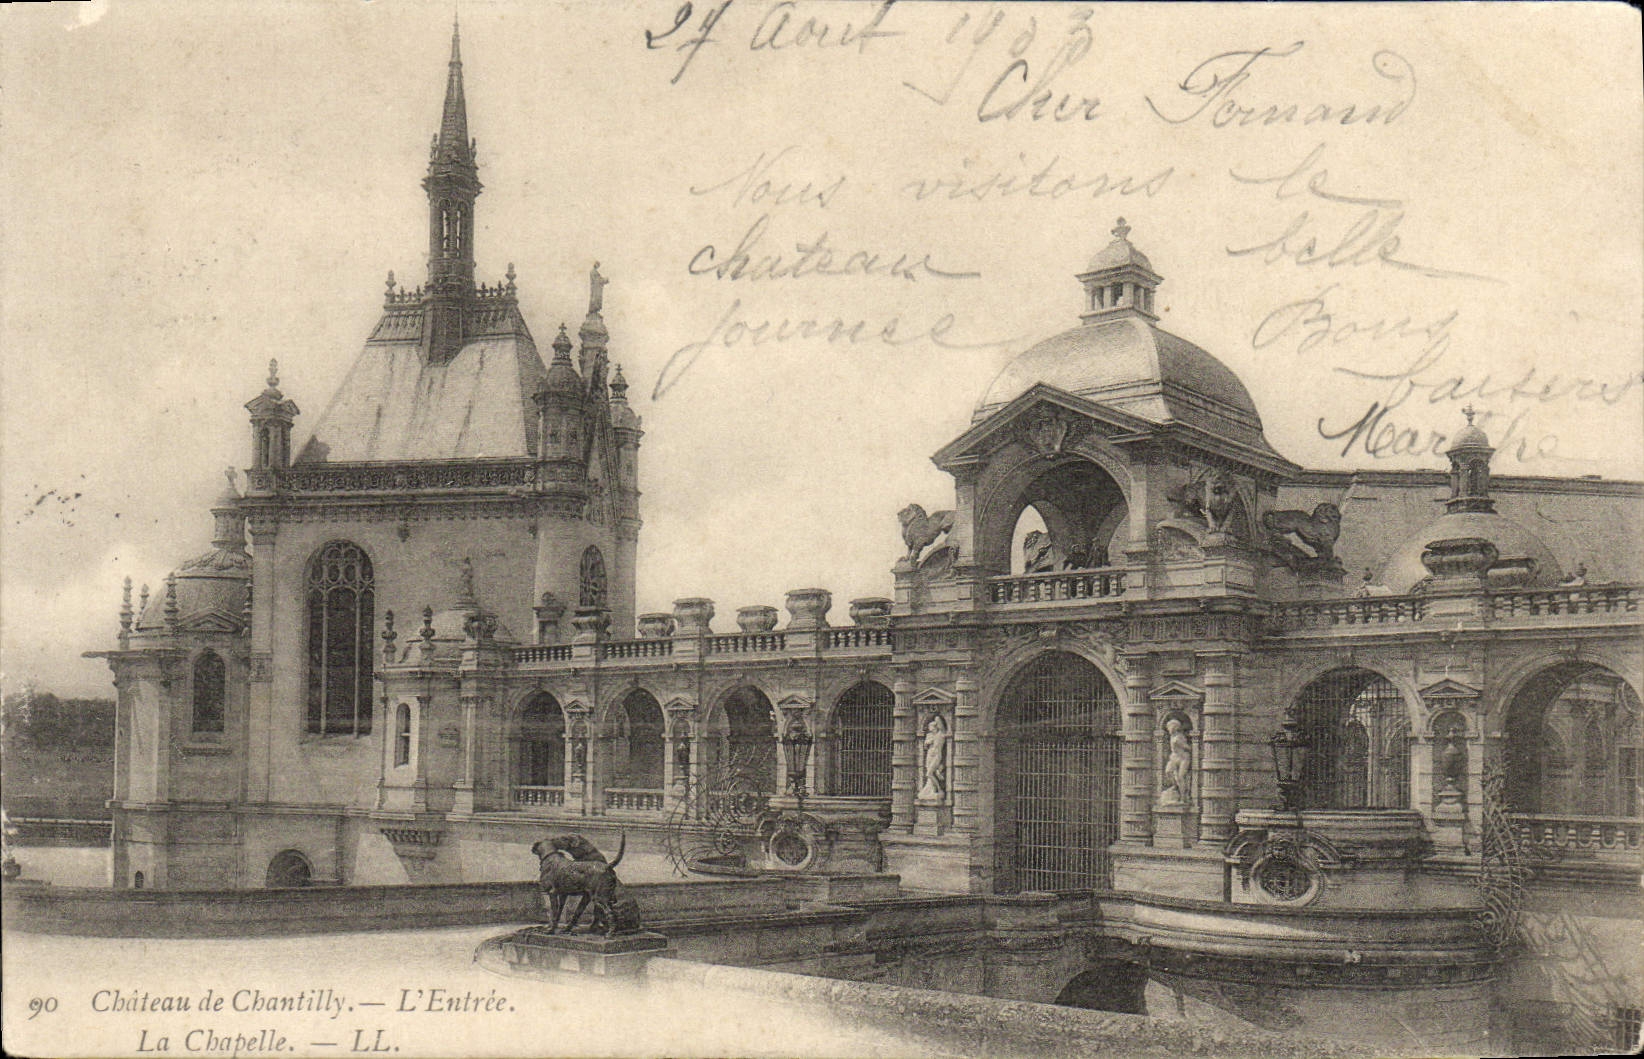 27 Aout 1903
Cher Fernand
Nous visitons le
chateau belle
journee Bons
baisers
Marthe
90 Château de Chantilly. — L'Entrée.
La Chapelle. — LL.